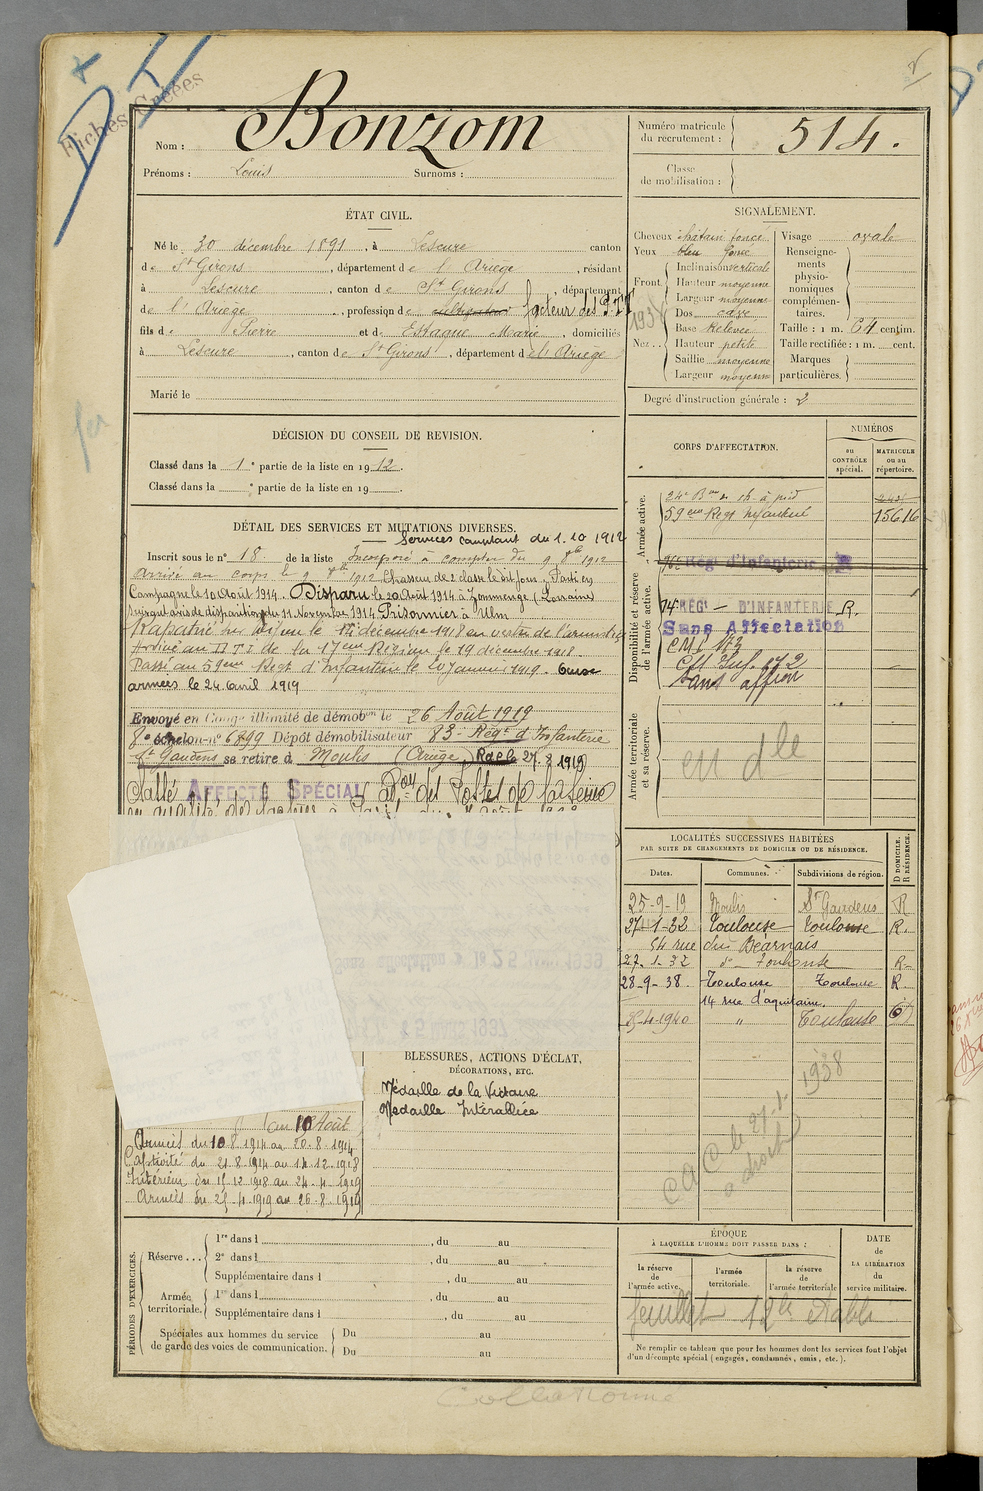 Fiches Créées
Nom : Bonzom
Prénoms : Louis Surnoms :
Numéro matricule du recrutement : 514.
Classe de mobilisation :
ÉTAT CIVIL.
Né le 30 décembre 1891, à Lescure canton
de St Girons, département de l'Ariège, résidant
à Lescure, canton de St Girons, département
de l'Ariège, profession de cultivateur facteur des P.T.T
fils de Pierre et de Estaque Marie, domiciliés
à Lescure, canton de St Girons, département de l'Ariège
Marié le
SIGNALEMENT.
Cheveux châtain foncé
Yeux bleu foncé
Front. Inclinaison verticale
Hauteur moyenne
Largeur moyenne
Nez.. Dos cave
Base Relevée
Hauteur petite
Saillie moyenne
Largeur moyenne
1938
Visage ovale
Renseignements physionomiques complémentaires.
Taille : 1 m. 64 centim.
Taille rectifiée : 1 m. cent.
Marques particulières.
Degré d'instruction générale : 2
DÉCISION DU CONSEIL DE REVISION.
Classé dans la 1e partie de la liste en 1912.
Classé dans la e partie de la liste en 19 .
DÉTAIL DES SERVICES ET MUTATIONS DIVERSES.
Services comptant du 1.10 1912
Inscrit sous le n° 18 de la liste Incorporé à compter du 9 8bre 1912
Arrivé au corps le 9 8bre 1912 Chasseur de 2 classe le dit jour. Parti en
Campagne le 10 Août 1914. Disparu le 20 Août 1914 à Zommenge (Lorraine)
suivant avis de disparition du 11 Novembre 1914 Prisonnier à Ulm
Rapatrié le 14 décembre 1918 en vertu de l'armistice
Arrivé au D.T.I de la 17eme Région le 19 décembre 1918.
Passé au 59eme Regt d'Infanterie le 20 Janvier 1919.
armées le 24 avril 1919
Envoyé en Congé illimité de démobon le 26 Août 1919
8e échelon n° 6899 Dépôt démobilisateur 83e Régt d'Infanterie
St Gaudens se retire à Moulis (Ariège) 27.8.1919
Classé AFFECTÉ SPÉCIAL des Postes de la Seine
CORPS D'AFFECTATION.
NUMÉROS
au CONTRÔLE spécial.
MATRICULE ou au répertoire.
Armée active.
24e Bon de ch. à pied
59eme Regt Infanterie 15616
Disponibilité et réserve de l'armée active.
Régt d'Infanterie
14e RÉGt D'INFANTERIE R.
Sans Affectation
CMI 173
Ctt Inf. 172
Sans affton
Armée territoriale et sa réserve.
LOCALITÉS SUCCESSIVES HABITÉES
PAR SUITE DE CHANGEMENTS DE DOMICILE OU DE RÉSIDENCE.
Dates. Communes. Subdivisions de région. D DOMICILE. R RÉSIDENCE.
25-9-19 Moulis St Gaudens R
27-1-32 Toulouse Toulouse R.
54 rue du Béarnais
27-1-32 d° Toulouse R.
28-9-38. Toulouse Toulouse R.
14 rue d'aquitaine.
-4-1940 " Toulouse
Sans affectation le 25 1939
BLESSURES, ACTIONS D'ÉCLAT,
DÉCORATIONS, ETC.
Médaille de la Victoire
Médaille Interalliée
CAC le 27-1-1938
a droit
au 10 Août
Armées du 10.8.1914 au 20.8.1914
Captivité du 21.8.1914 au 14.12.1918
Intérieur du 15 12 1918 au 24-4-1919
Armées du 25-4-1919 au 26-8-1919
PÉRIODES D'EXERCICES.
Réserve... 1re dans l , du au
2e dans l , du au
Supplémentaire dans l , du au
Armée territoriale. 1re dans l , du au
Supplémentaire dans l , du au
Spéciales aux hommes du service de garde des voies de communication. Du au
Du au
ÉPOQUE
À LAQUELLE L'HOMME DOIT PASSER DANS :
la réserve de l'armée active.
l'armée territoriale.
la réserve de l'armée territoriale
DATE de LA LIBÉRATION du service militaire.
feuillet Etabli
Ne remplir ce tableau que pour les hommes dont les services font l'objet
d'un décompte spécial (engagés, condamnés, omis, etc.).
Collationné